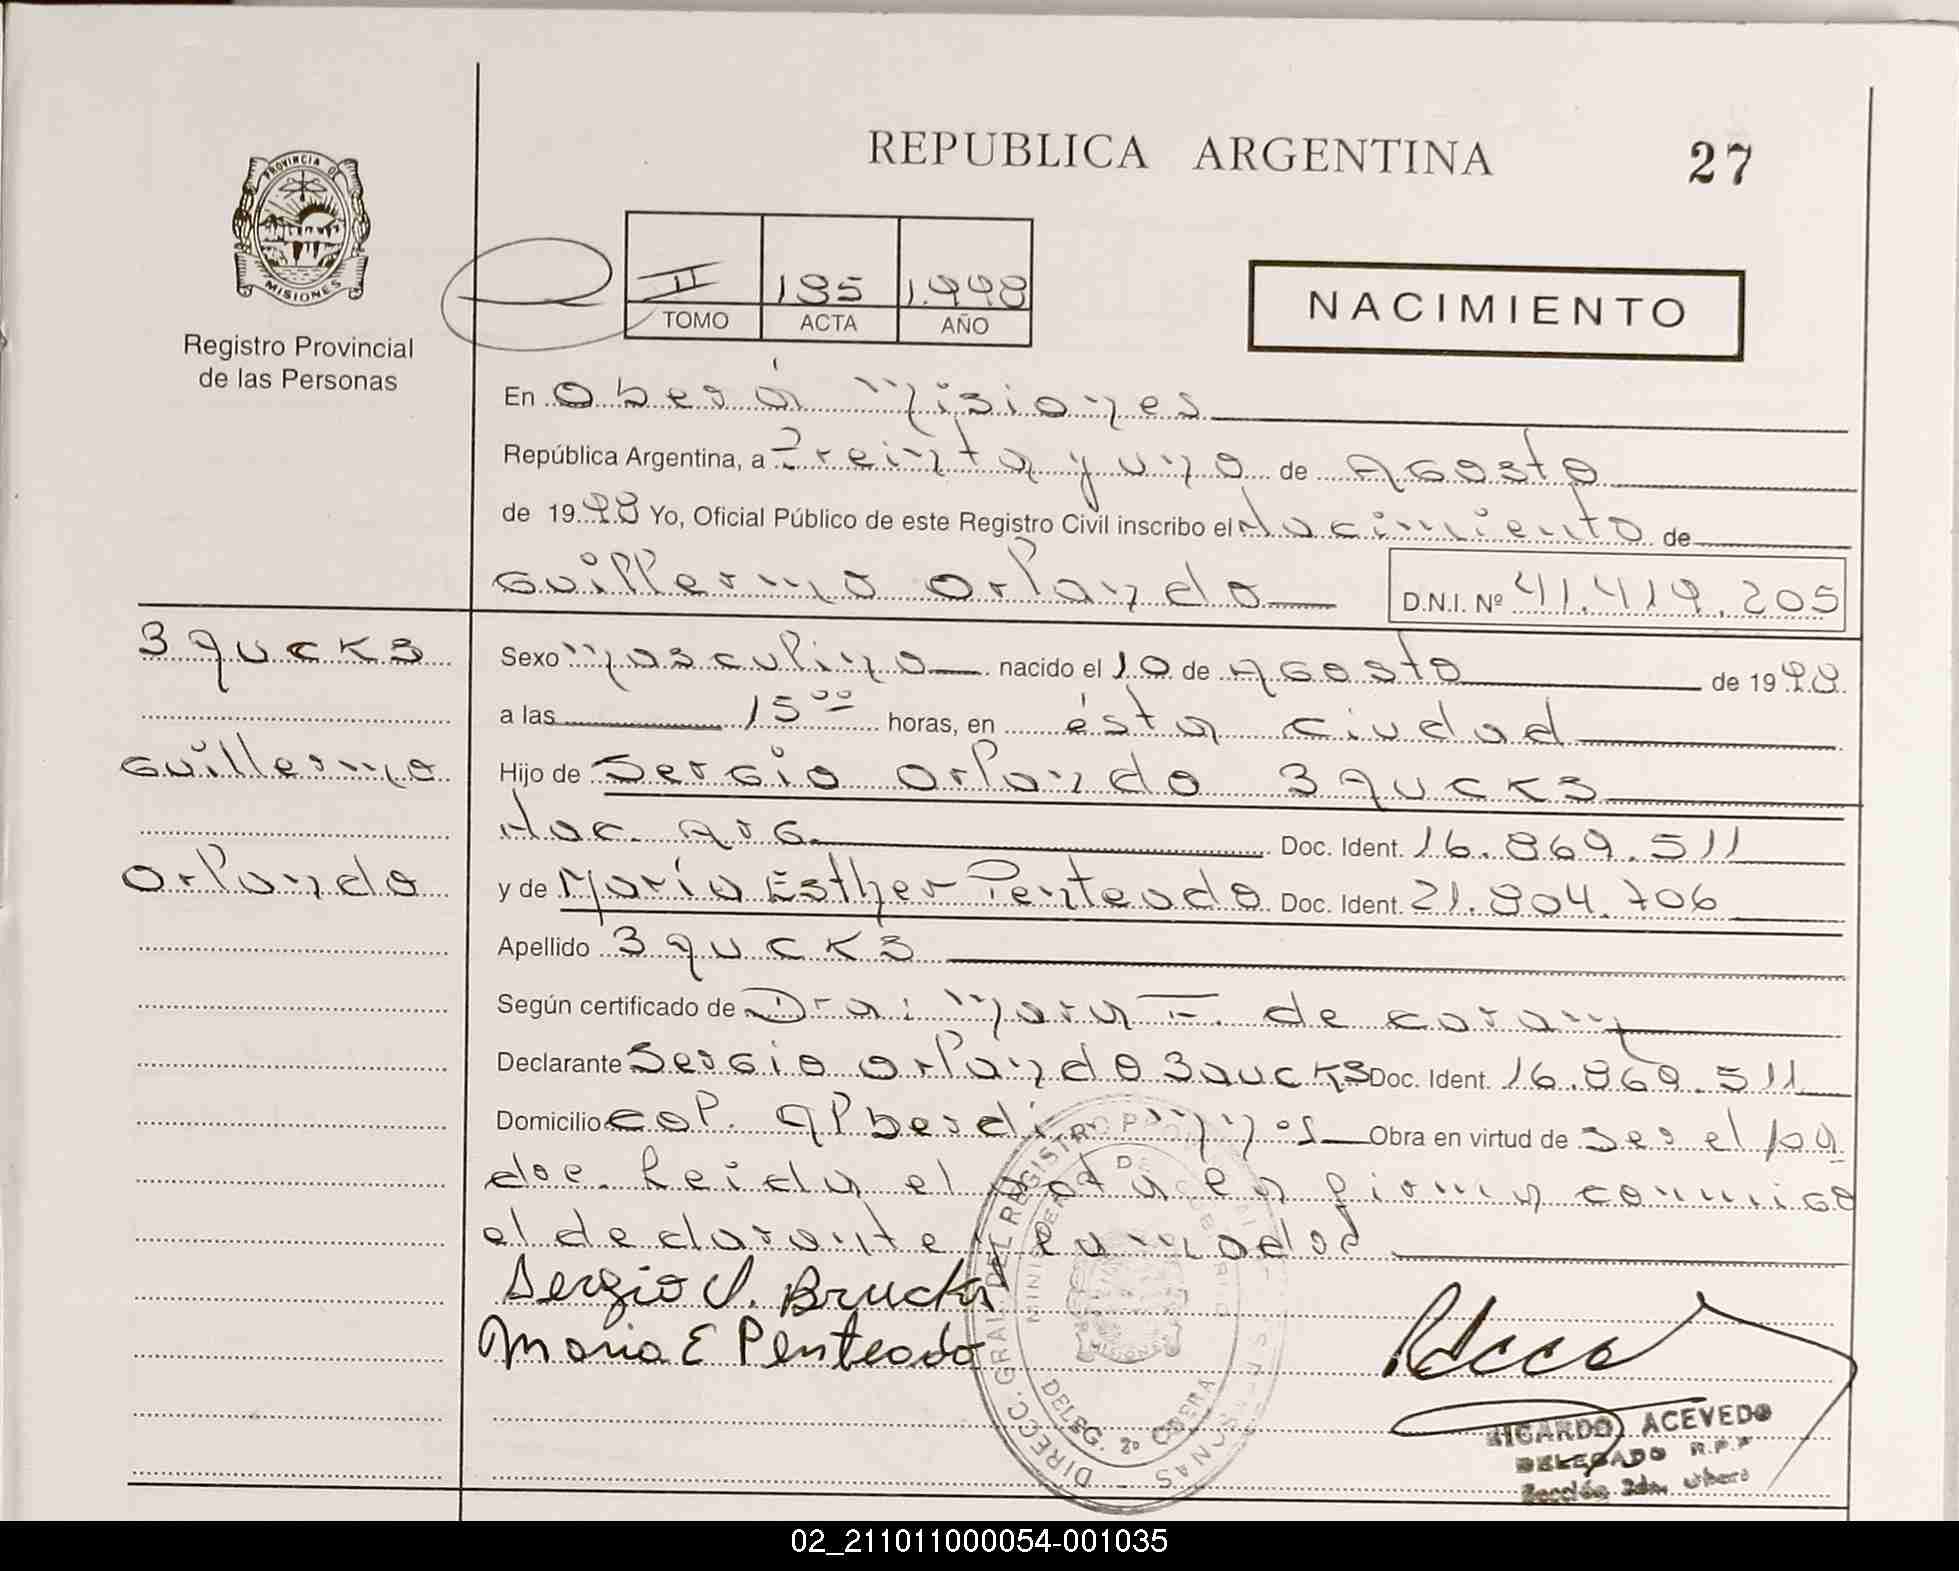 REPUBLICA ARGENTINA
27
PROVINCIA DE
MISIONES
Registro Provincial
de las Personas
II 195 1.998
TOMO ACTA AÑO
NACIMIENTO
En Oberá Misiones
República Argentina, a Treinta y uno de Agosto
de 1998 Yo, Oficial Público de este Registro Civil inscribo el Nacimiento de
Guillermo Orlando D.N.I. Nº 41.419.205
Brucks
Sexo Masculino nacido el 10 de Agosto de 1998
a las 15 00 horas, en ésta ciudad
Guillermo
Hijo de Sergio Orlando Brucks
Nac. Arg. Doc. Ident. 16.869.511
Orlando
y de María Esther Penteado Doc. Ident. 21.804.706
Apellido Brucks
Según certificado de Dra: Mara F. de
Declarante Sergio Orlando Brucks Doc. Ident. 16.869.511
Domicilio Col. Alberdi Mnes Obra en virtud de ser el pa
dre. Leida el acta la firma conmigo
el declarante y
Sergio O. Brucks
Maria E Penteado
DIRECC. GRAL. DEL REGISTRO PROVINCIAL DE LAS PERSONAS
MINISTERIO DE GOBIERNO
MISIONES
DELEG. 2º OBERA
RICARDO ACEVEDO
DELEGADO R.P.P
Sección 2da. Oberá
02_211011000054-001035